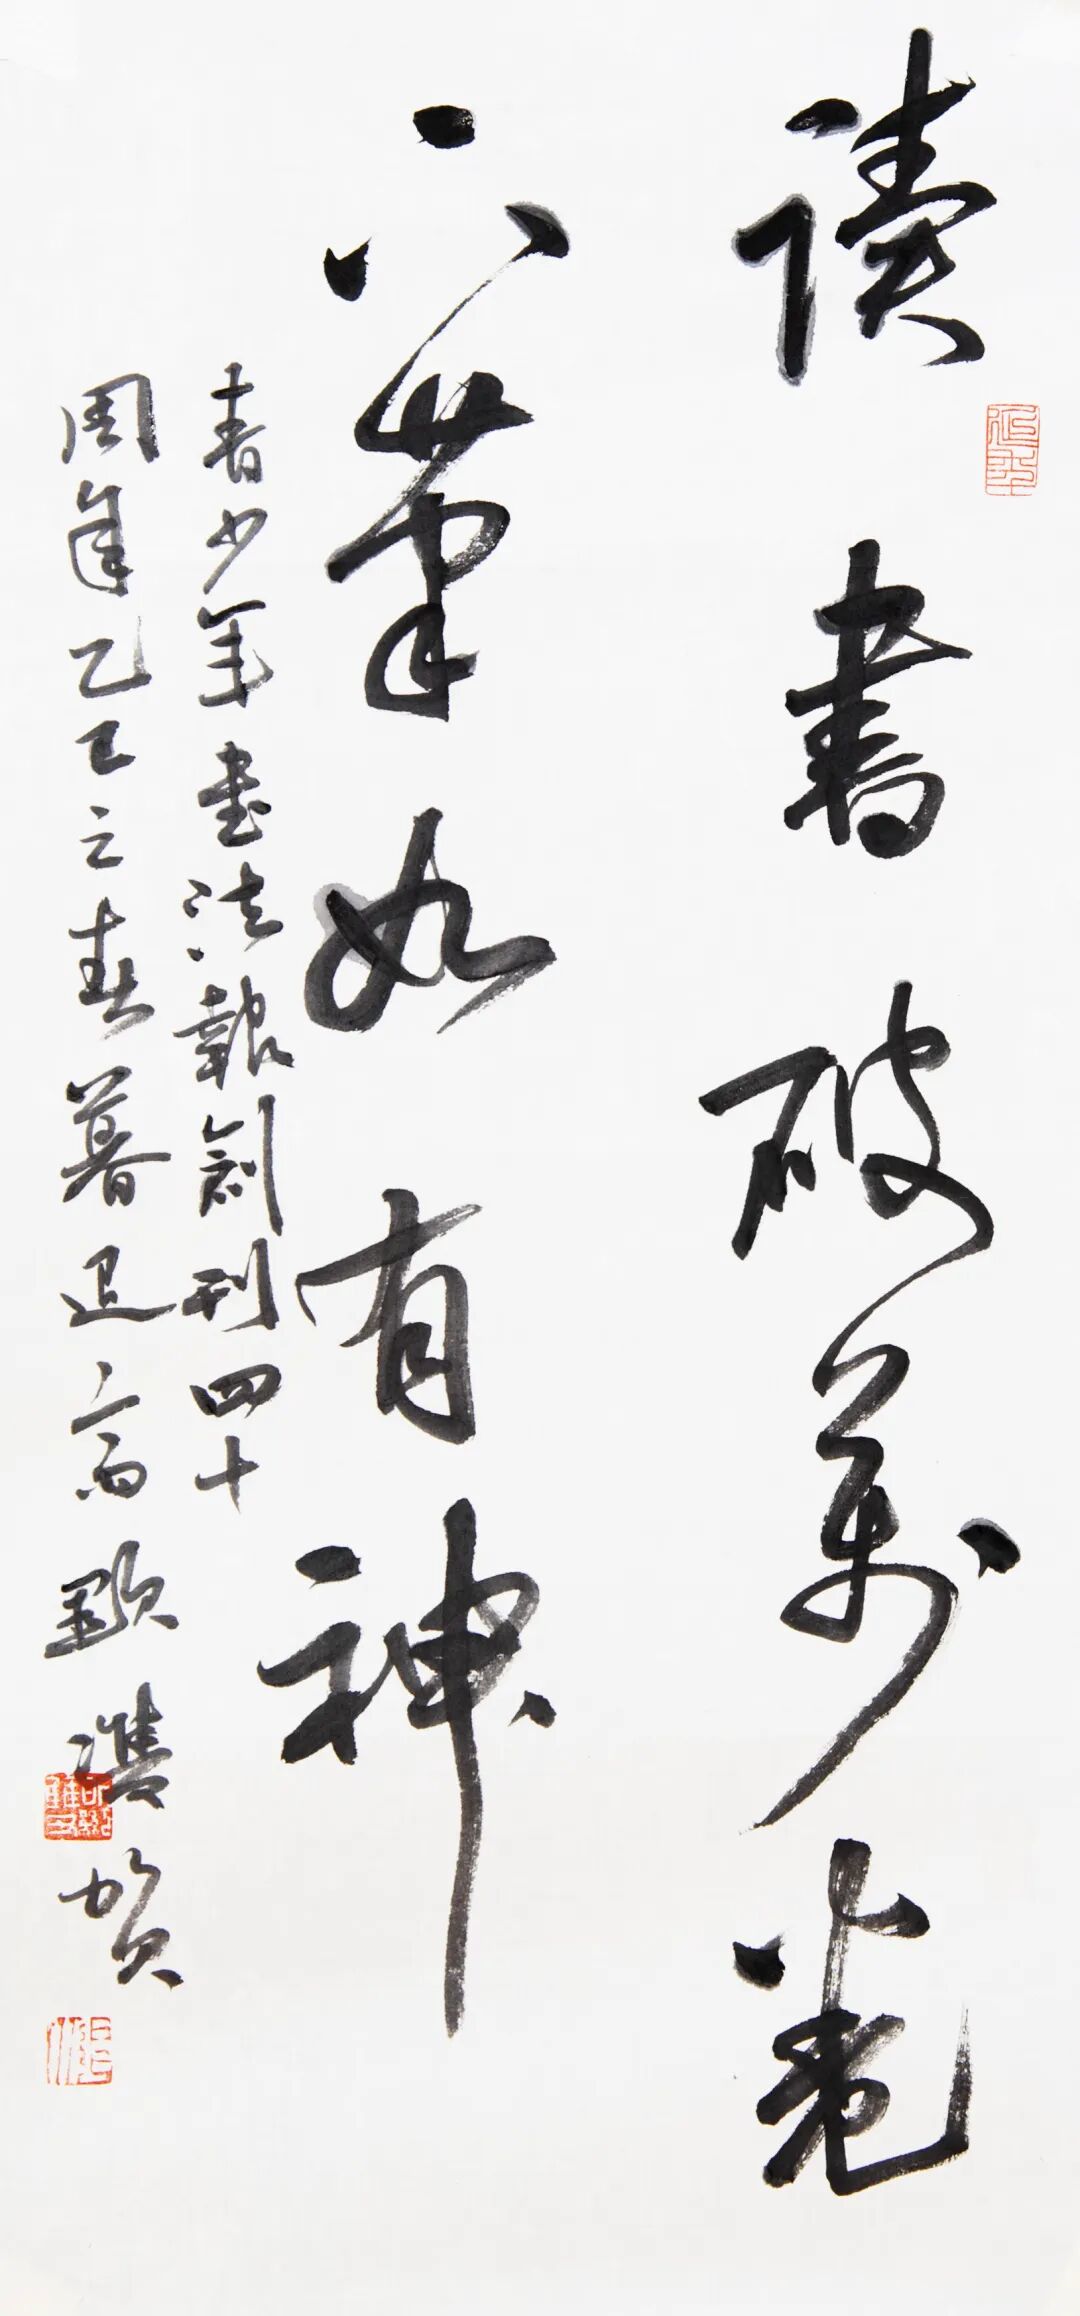 讀書破萬卷
下筆如有神
青少年書法報創刊四十
周年乙巳之春暮退齋賀